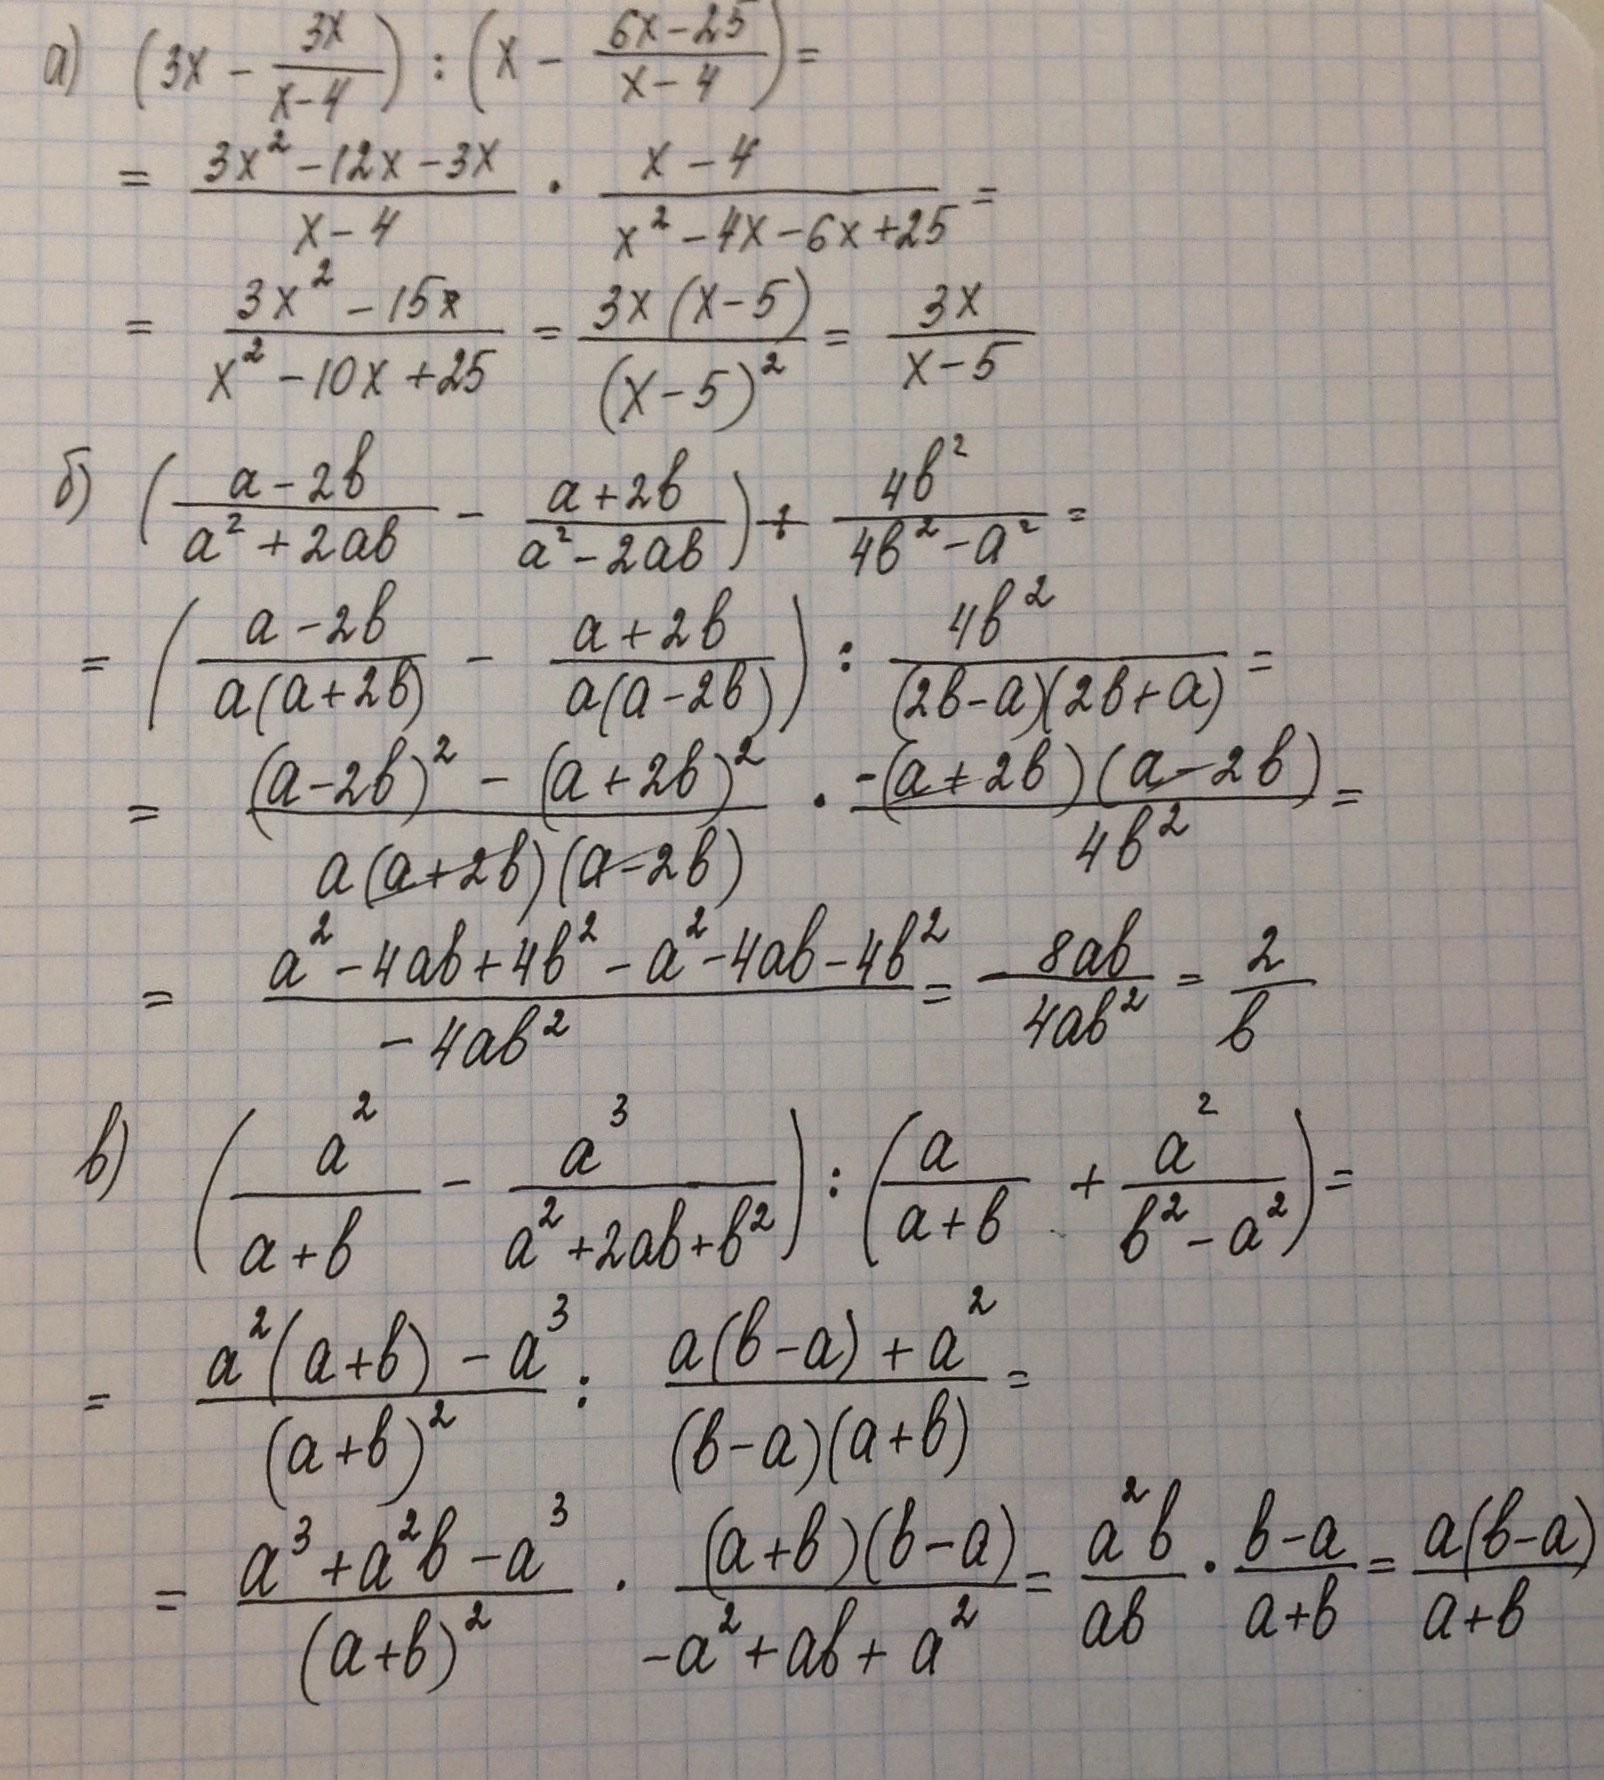 а) (3x - 3x/(x-4)) : (x - (6x-25)/(x-4)) =
= (3x² - 12x - 3x)/(x-4) · (x-4)/(x² - 4x - 6x + 25) =
= (3x² - 15x)/(x² - 10x + 25) = 3x(x-5)/(x-5)² = 3x/(x-5)
б) ((a-2b)/(a² + 2ab) - (a+2b)/(a² - 2ab)) ÷ 4b²/(4b² - a²) =
= ((a-2b)/(a(a+2b)) - (a+2b)/(a(a-2b))) : 4b²/((2b-a)(2b+a)) =
= ((a-2b)² - (a+2b)²)/(a(a+2b)(a-2b)) · -(a+2b)(a-2b)/4b² =
= (a² - 4ab + 4b² - a² - 4ab - 4b²)/(-4ab²) = - 8ab/4ab² = 2/b
в) (a²/(a+b) - a³/(a² + 2ab + b²)) : (a/(a+b) + a²/(b² - a²)) =
= (a²(a+b) - a³)/(a+b)² : (a(b-a) + a²)/((b-a)(a+b)) =
= (a³ + a²b - a³)/(a+b)² · (a+b)(b-a)/(-a² + ab + a²) = a²b/ab · (b-a)/(a+b) = a(b-a)/(a+b)